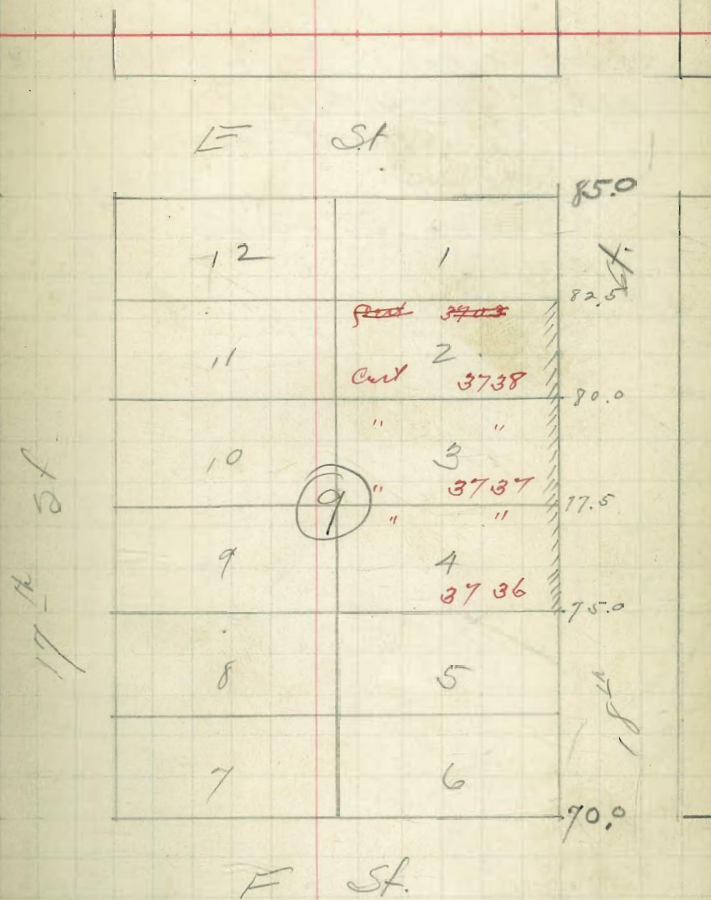 E St
85.0
12 1
82.5
Cert 3703
11 2
Cert 3738
80.0
" "
10 3
" 3737
9
77.5
" "
9 4
3736
75.0
8 5
7 6
70.0
17th St
18th St.
F St.